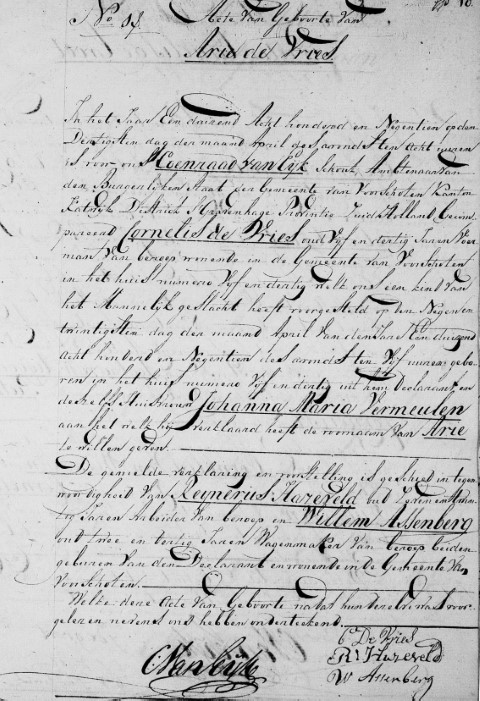 Acte van Geboorte van
Arie de Vries.
In het Jaar Een duizend Acht honderd en Negentien op den
Dertigsten dag der maand april des avonds ten Acht uuren
is voor ons Coenraad van Eijk Schout, Ambtenaar van
den Burgerlijken Staat der Gemeente van Voorschoten Kanton
Katwijk District 's Gravenhage Provintie Zuid Holland Gecom
pareerd Cornelis de Vries, oud Vijf en dertig Jaren Voer
man van beroep wonende in de Gemeente van Voorschoten
in het huis numero Vijf en dertig welk ons een kind van
het Mannelijk geslacht heeft voorgesteld op den Negen en
twintigsten dag der maand April van den Jare Een duizend
Acht honderd en Negentien des avonds ten Vijf uuren gebo
ren in het huis numero Vijf en dertig uit hem Declarant en
deszelfs Huisvrouw Johanna Maria Vermeulen
aan het welk hij verklaard heeft de voornaam van Arie
te willen geven.
De gemelde verklaring en voorstelling is geschied in tegen
woordigheid van Reynerus Hazeveld oud Zeven en
tig Jaren Arbeider van beroep en Willem Assenberg
oud twee en dertig Jaren Wagenmaker van beroep beiden
gebuuren van den Declarant en wonende in de Gemeente van
Voorschoten.
Welke deze Acte van Geboorte na dat hun dezelve was voor
gelezen nevens ons hebben onderteekend.
C De Vries
R Hazeveld
CVan Eijk
W Assenberg